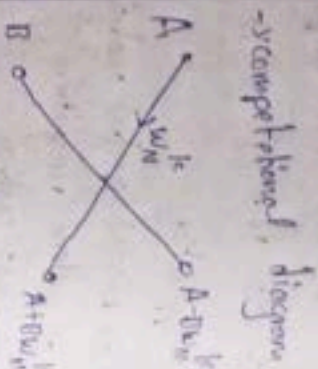 → competational diagram
A
A-BW_N^k
W_N^k
B
A+BW_N^k